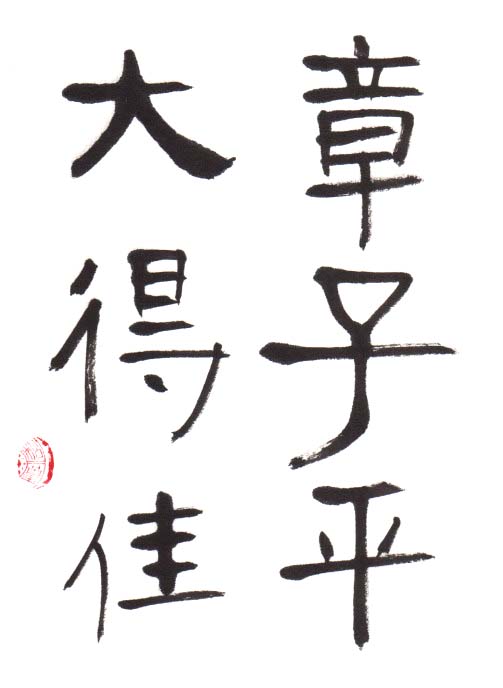 章子平
大得佳